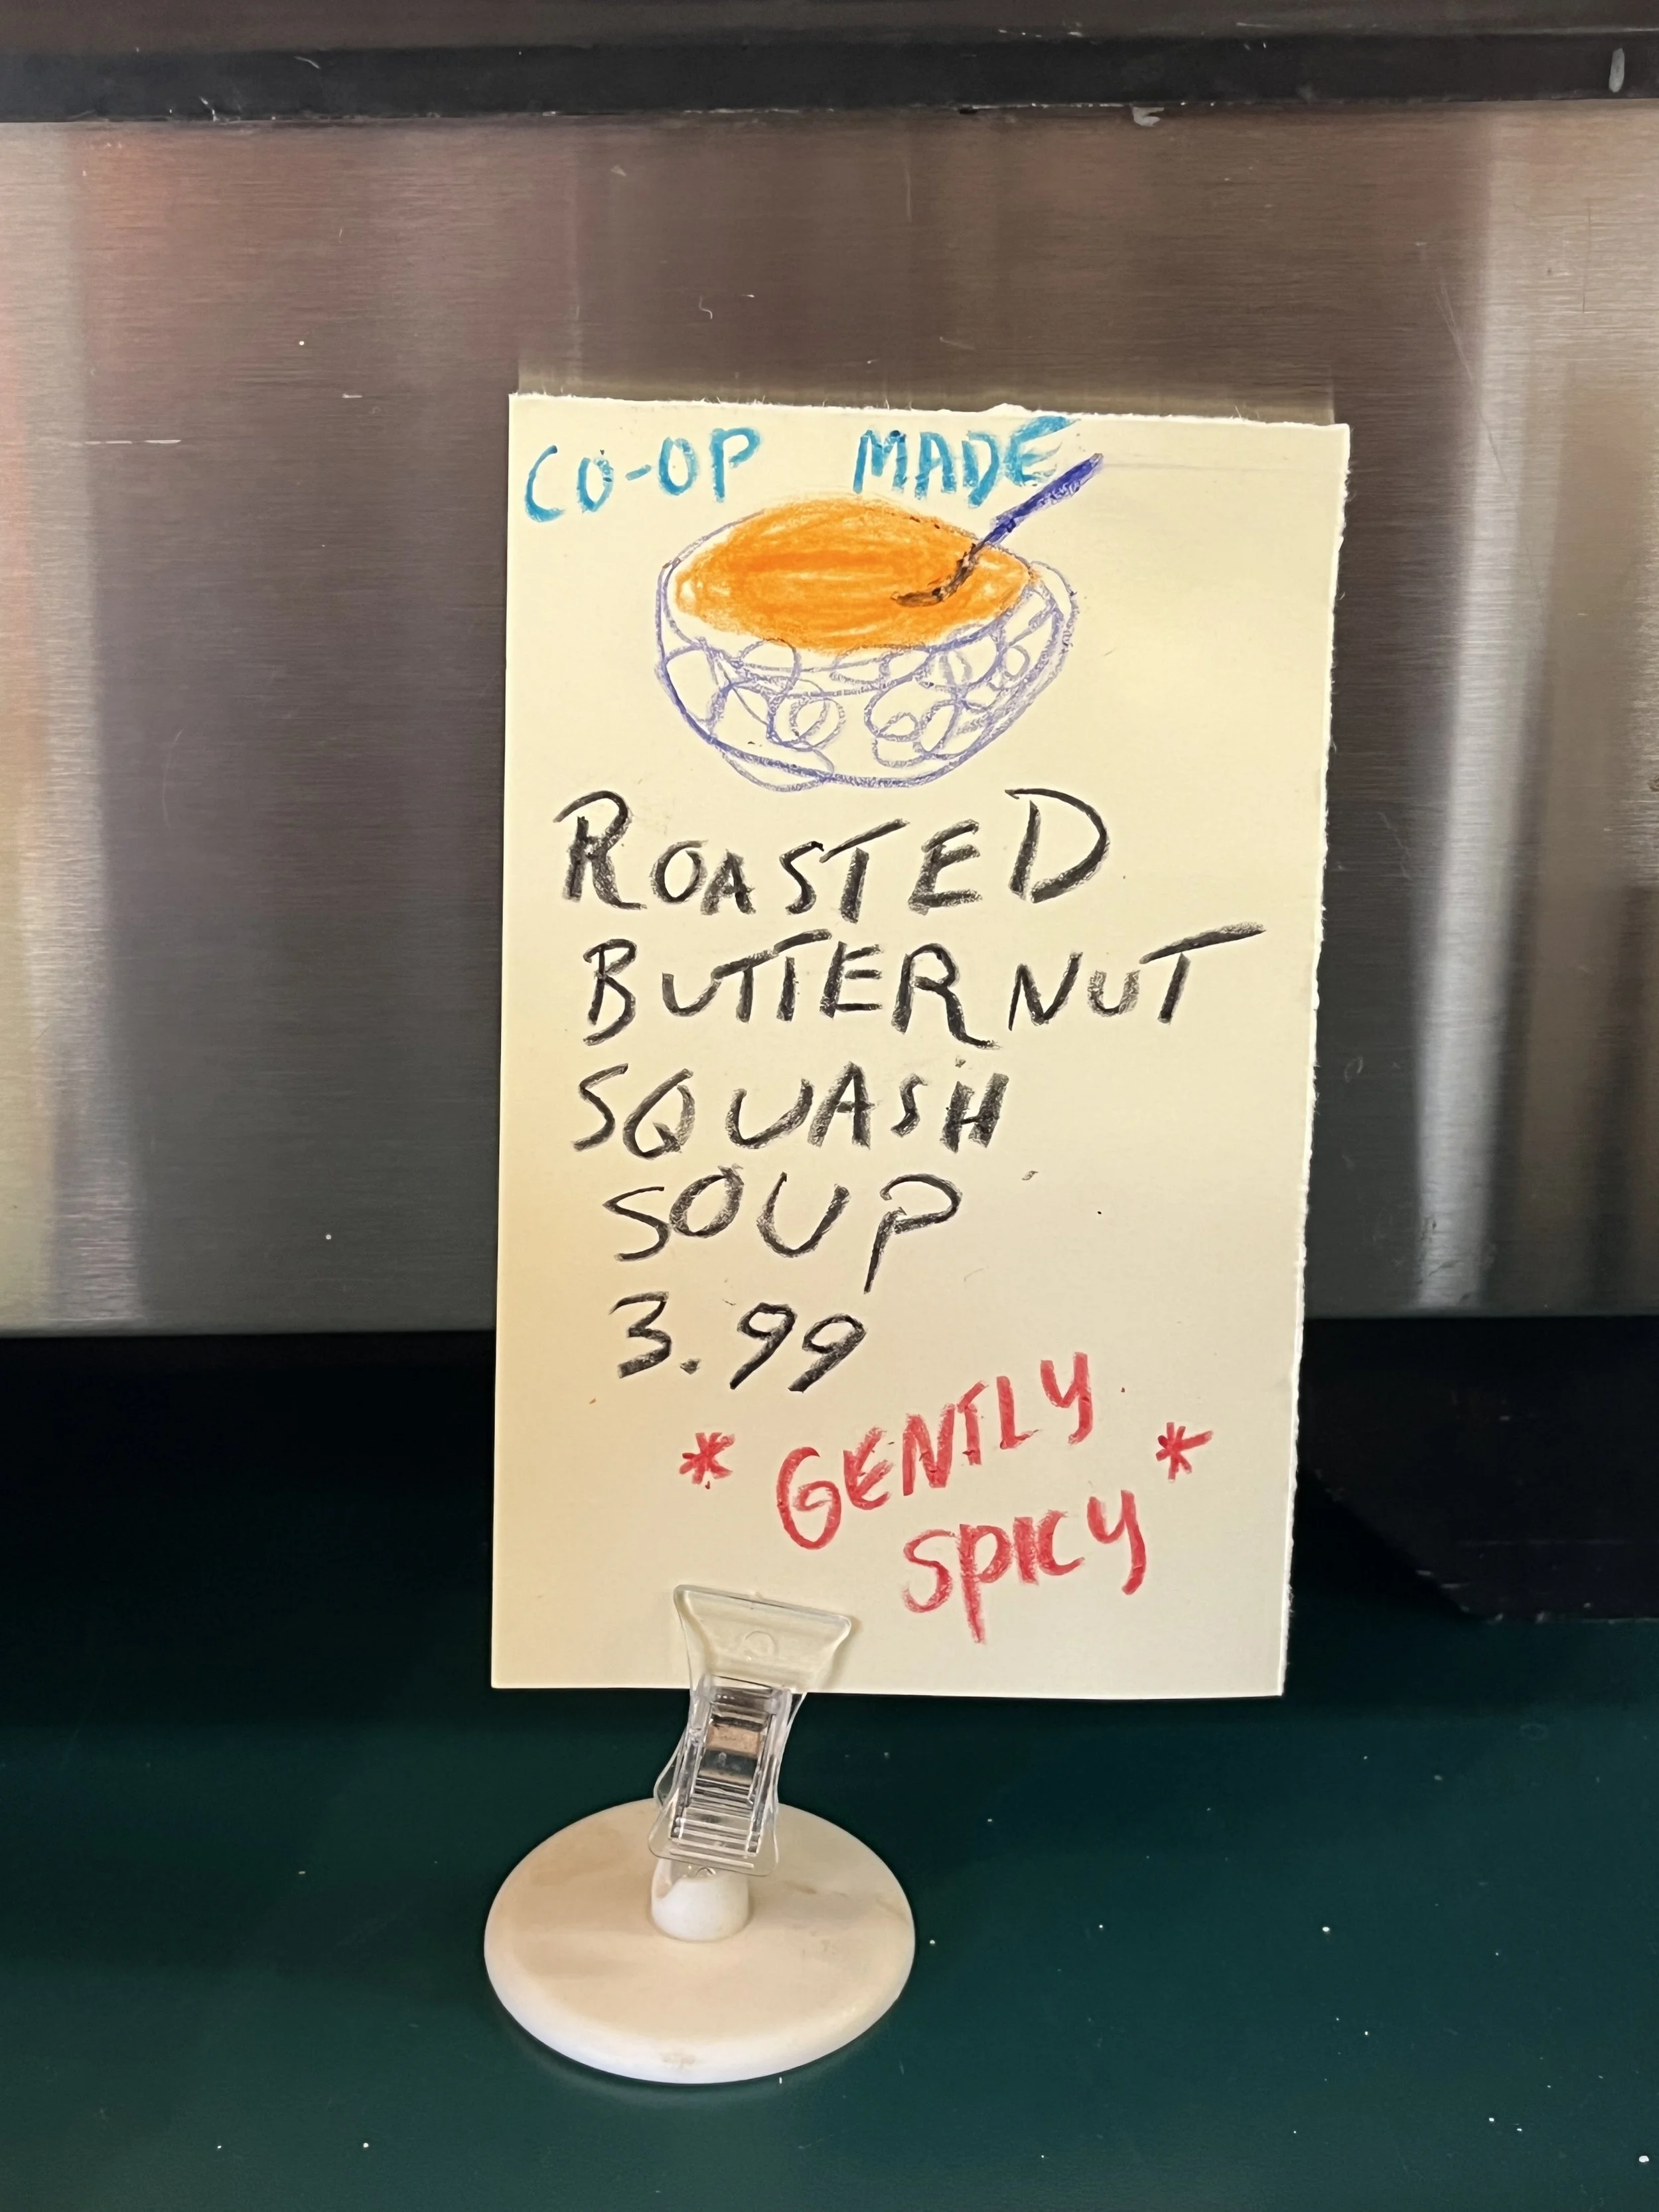 CO-OP MADE
ROASTED
BUTTERNUT
SQUASH
SOUP
3.99
* GENTLY *
SPICY